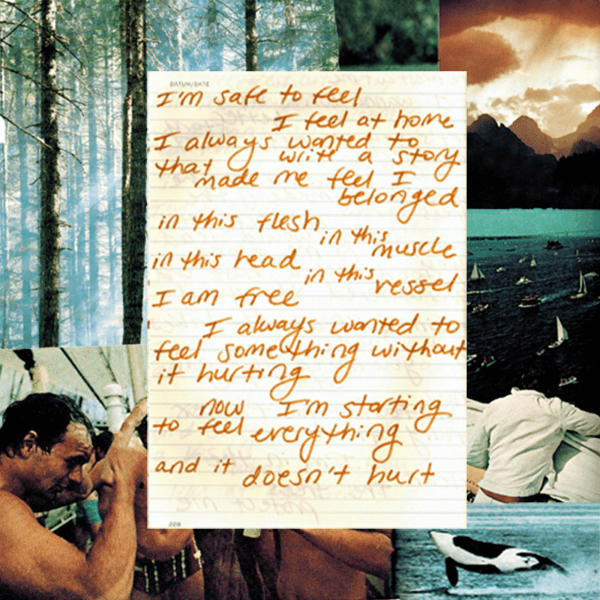 DATUM/DATE
I'm safe to feel
I feel at home
I always wanted to
write a story
that made me feel I
belonged
in this flesh
in this muscle
in this head
in this vessel
I am free
I always wanted to
feel something without
it hurting
now I'm starting
to feel everything
and it doesn't hurt